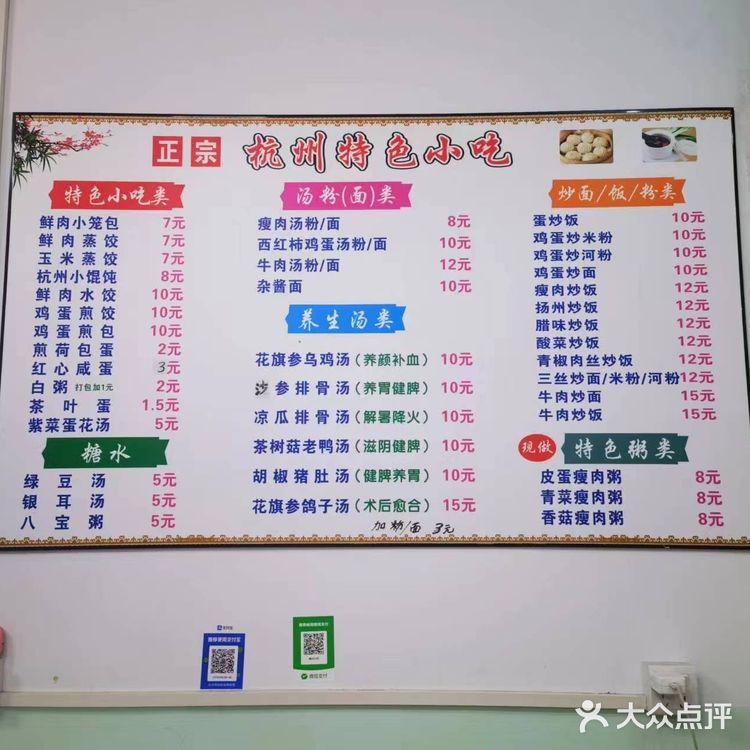 正宗 杭州特色小吃
特色小吃类
鲜肉小笼包 7元
鲜肉蒸饺 7元
玉米蒸饺 7元
杭州小馄饨 8元
鲜肉水饺 10元
鸡蛋煎饺 10元
鸡蛋煎包 10元
煎荷包蛋 2元
红心咸蛋 3元
白粥 打包加1元 2元
茶叶蛋 1.5元
紫菜蛋花汤 5元
糖水
绿豆汤 5元
银耳汤 5元
八宝粥 5元
汤粉(面)类
瘦肉汤粉/面 8元
西红柿鸡蛋汤粉/面 10元
牛肉汤粉/面 12元
杂酱面 10元
养生汤类
花旗参乌鸡汤(养颜补血) 10元
沙参排骨汤(养胃健脾) 10元
凉瓜排骨汤(解暑降火) 10元
茶树菇老鸭汤(滋阴健脾) 10元
胡椒猪肚汤(健脾养胃) 10元
花旗参鸽子汤(术后愈合) 15元
加粉/面 3元
炒面/饭/粉类
蛋炒饭 10元
鸡蛋炒米粉 10元
鸡蛋炒河粉 10元
鸡蛋炒面 10元
瘦肉炒饭 12元
扬州炒饭 12元
腊味炒饭 12元
酸菜炒饭 12元
青椒肉丝炒饭 12元
三丝炒面/米粉/河粉 12元
牛肉炒面 15元
牛肉炒饭 15元
现做 特色粥类
皮蛋瘦肉粥 8元
青菜瘦肉粥 8元
香菇瘦肉粥 8元
支付宝
推荐使用支付宝
推荐使用微信支付
微信支付
大众点评